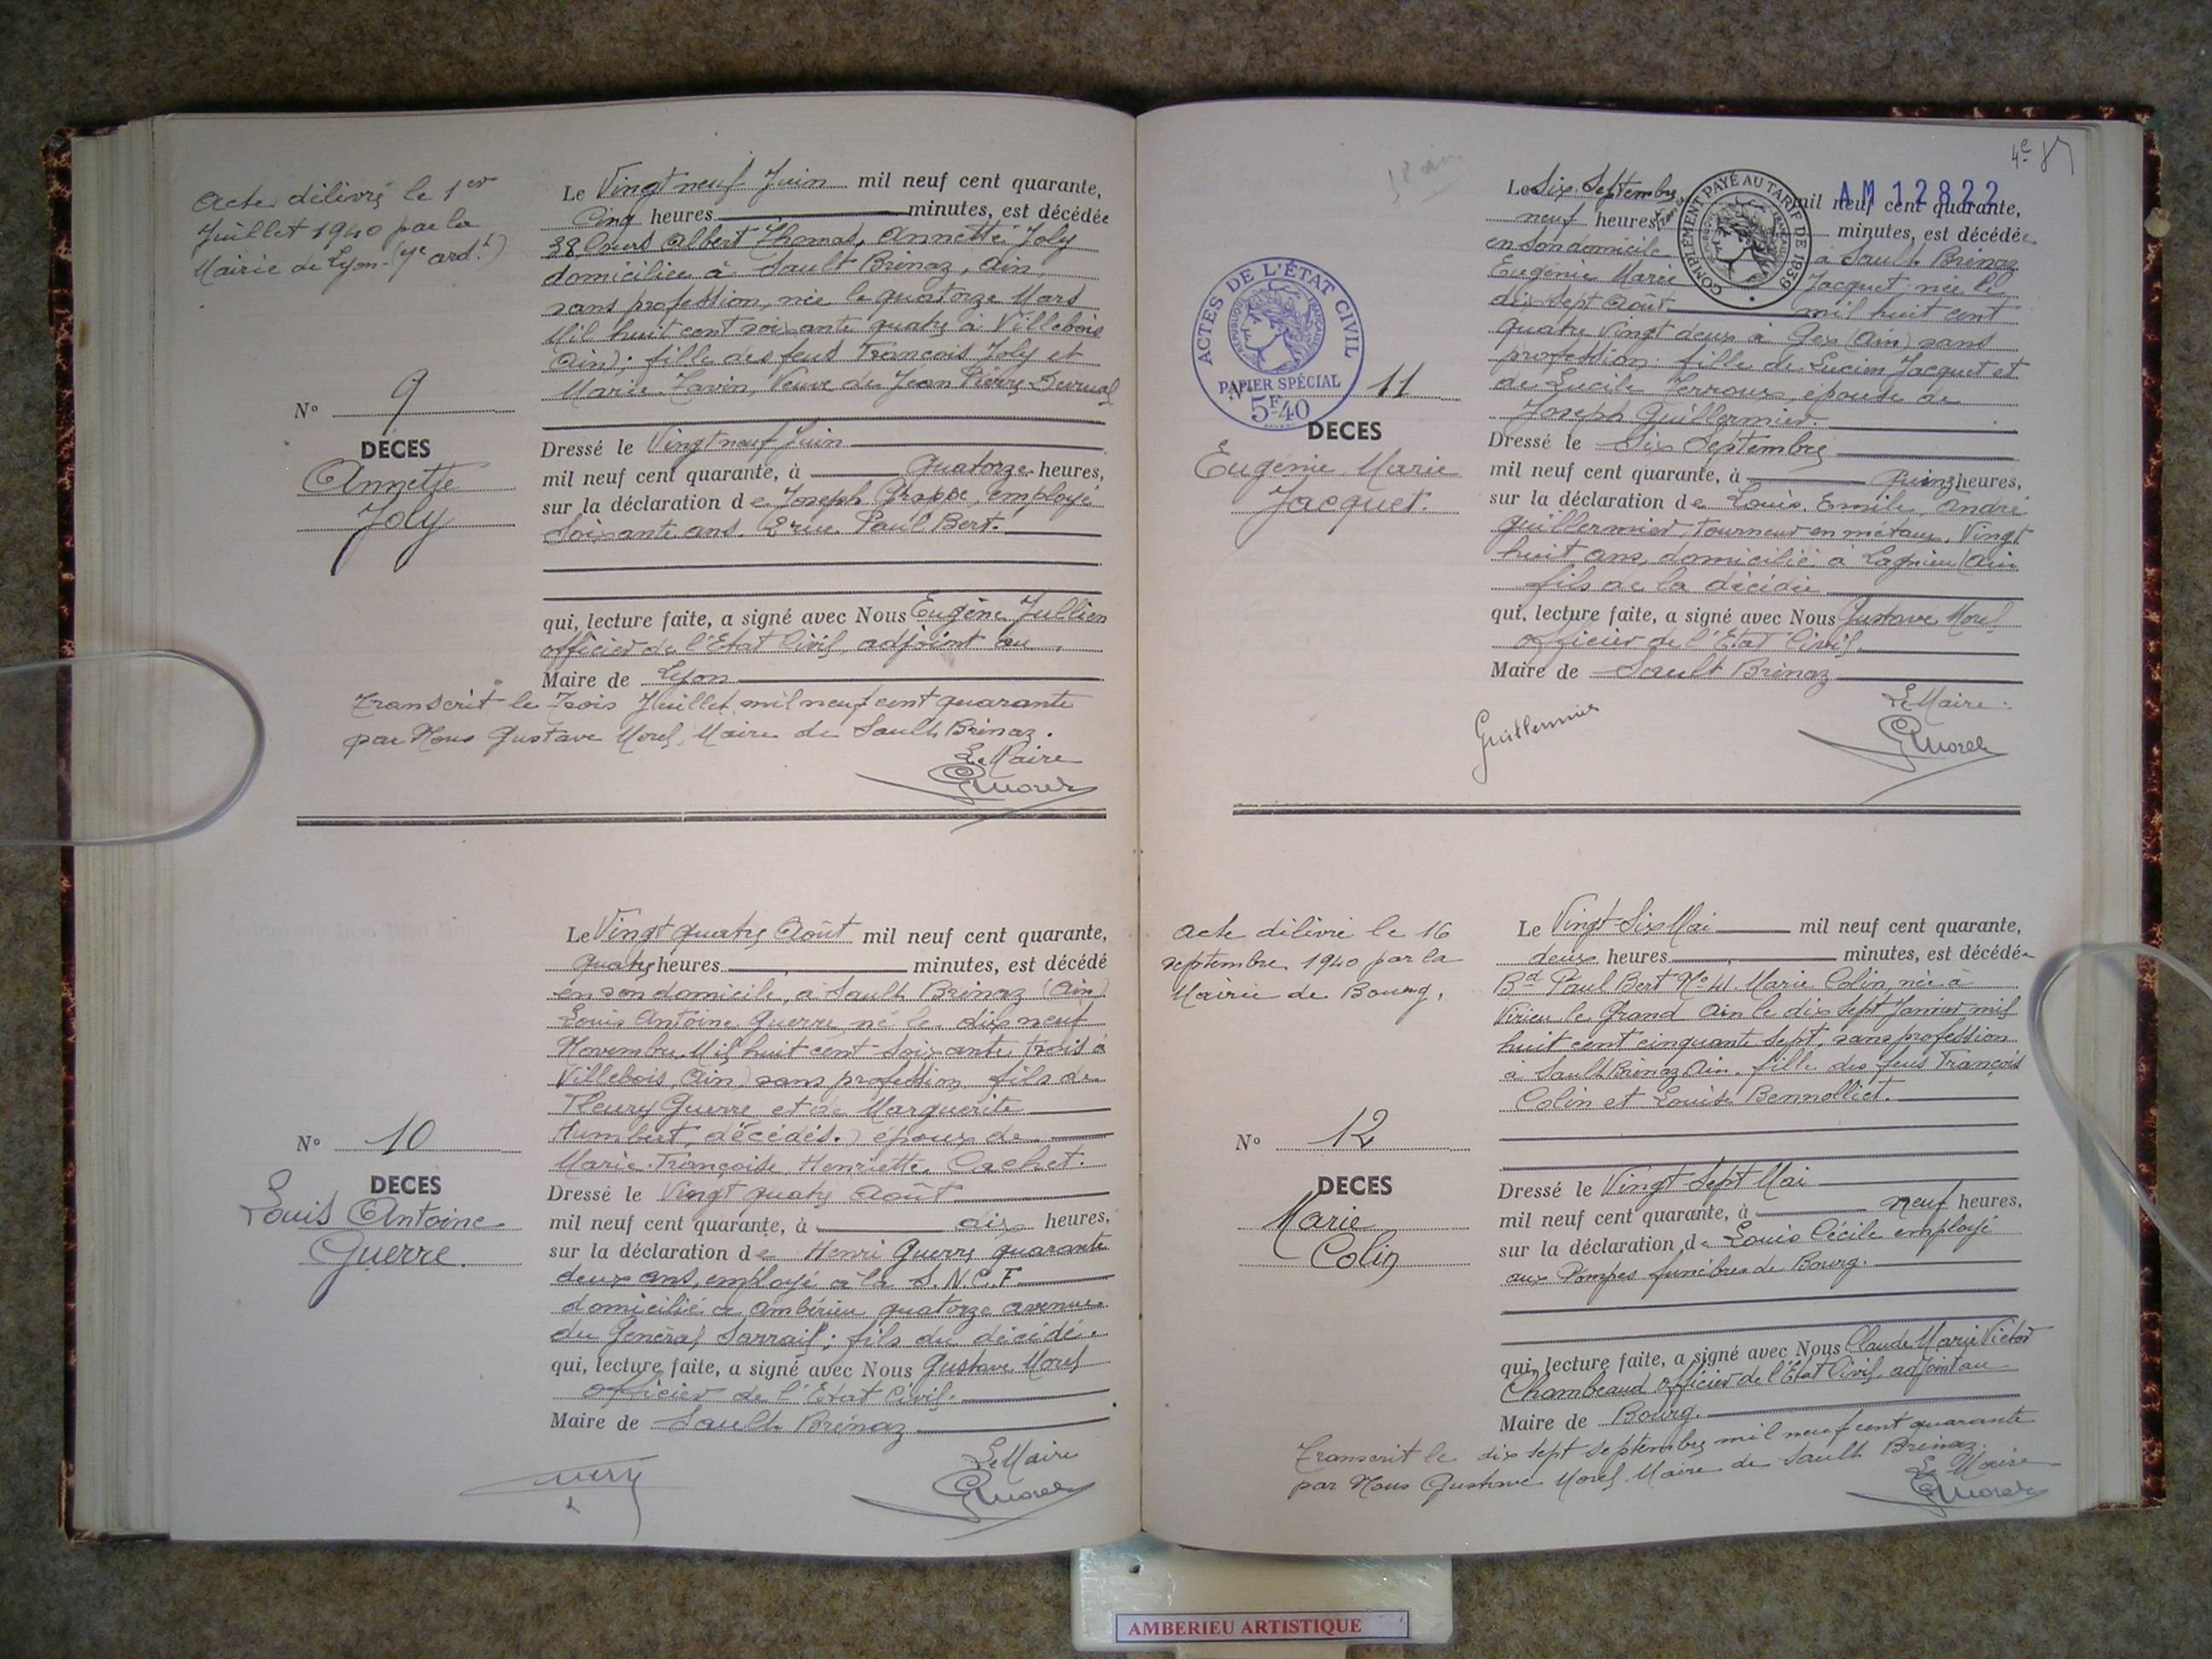 Acte délivré le 1er
Juillet 1940 par la
Mairie de Lyon
Le Vingt neuf Juin mil neuf cent quarante,
Cinq heures minutes, est décédée
38, Cours Albert Thomas, Annette Joly
domiciliée à Sault Brénaz, Ain,
sans profession, née le quatorze Mars
Mil huit cent soixante quatre à Villebois
Ain); fille des feus François Joly et
Marie Veuve de Jean Pierre
Nº 9
DÉCÈS
Annette
Joly
Dressé le Vingt neuf Juin
mil neuf cent quarante, à Quatorze heures,
sur la déclaration de Joseph Grappe, employé
Soixante ans. 2 rue Paul Bert.
qui, lecture faite, a signé avec Nous Eugène Jullien
officier de l'Etat Civil, adjoint au
Maire de Lyon
Transcrit le Trois Juillet mil neuf cent quarante
par Nous Gustave Morel, Maire de Sault Brénaz.
Le Maire
GMorel
Nº 10
DECES
Louis Antoine
Guerre.
Le Vingt quatre Août mil neuf cent quarante,
quatre heures minutes, est décédé
en son domicile, à Sault Brénaz (Ain)
Louis Antoine Guerre, né le dix neuf
Novembre Mil huit cent soixante trois à
Villebois (Ain) sans profession fils de
Fleury Guerre et de Marguerite
Humbert, décédés.) époux de
Marie Françoise Henriette Cachet.
Dressé le Vingt quatre Août
mil neuf cent quarante, à dix heures,
sur la déclaration de Henri Guerre, quarante
deux ans, employé à la S.N.C.F.
domicilié à Ambérieu quatorze avenue
du Général Sarrail; fils du décédé.
qui, lecture faite, a signé avec Nous Gustave Morel
officier de l'Etat Civil.
Maire de Sault Brénaz
Le Maire
GMorel
4e
AM 12822
COMPLÉMENT PAYÉ AU TARIF DE 1939
ACTES DE L'ÉTAT CIVIL
RÉPUBLIQUE FRANÇAISE
PAPIER SPÉCIAL
5F40
Nº 11
DECES
Eugénie Marie
Jacquet.
Le Six Septembre mil neuf cent quarante,
neuf heures minutes, est décédée
en son domicile à Sault Brénaz
Eugénie Marie Jacquet née le
dix sept Août mil huit cent
quatre vingt deux à Gex (Ain) sans
profession. fille de Lucien Jacquet et
de Lucile épouse de
Joseph Guillermier.
Dressé le Six Septembre
mil neuf cent quarante, à Quinze heures,
sur la déclaration de Louis Emile André
Guillermier, tourneur en métaux, Vingt
huit ans, domicilié à Lagnieu (Ain
fils de la décédée
qui, lecture faite, a signé avec Nous Gustave Morel
officier de l'Etat Civil.
Maire de Sault Brénaz
Le Maire.
Guillermier
GMorel
Acte délivré le 16
septembre 1940 par la
Mairie de Bourg.
Nº 12
DECES
Marie
Colin
Le Vingt Six Mai mil neuf cent quarante,
deux heures minutes, est décédée
Bd Paul Bert Nº 41 Marie Colin, née à
Virieu le Grand Ain le dix sept Janvier mil
huit cent cinquante sept, sans profession
à Sault Brénaz Ain. fille des feus François
Colin et Louise
Dressé le Vingt Sept Mai
mil neuf cent quarante, à neuf heures,
sur la déclaration de Louis Cécile employé
aux Pompes funèbres de Bourg.
qui, lecture faite, a signé avec Nous Claude Marie Victor
Chambeaud officier de l'Etat Civil, adjoint au
Maire de Bourg.
Transcrit le dix sept septembre mil neuf cent quarante
par Nous Gustave Morel. Maire de Sault Brénaz.
Le Maire
GMorel
AMBERIEU ARTISTIQUE